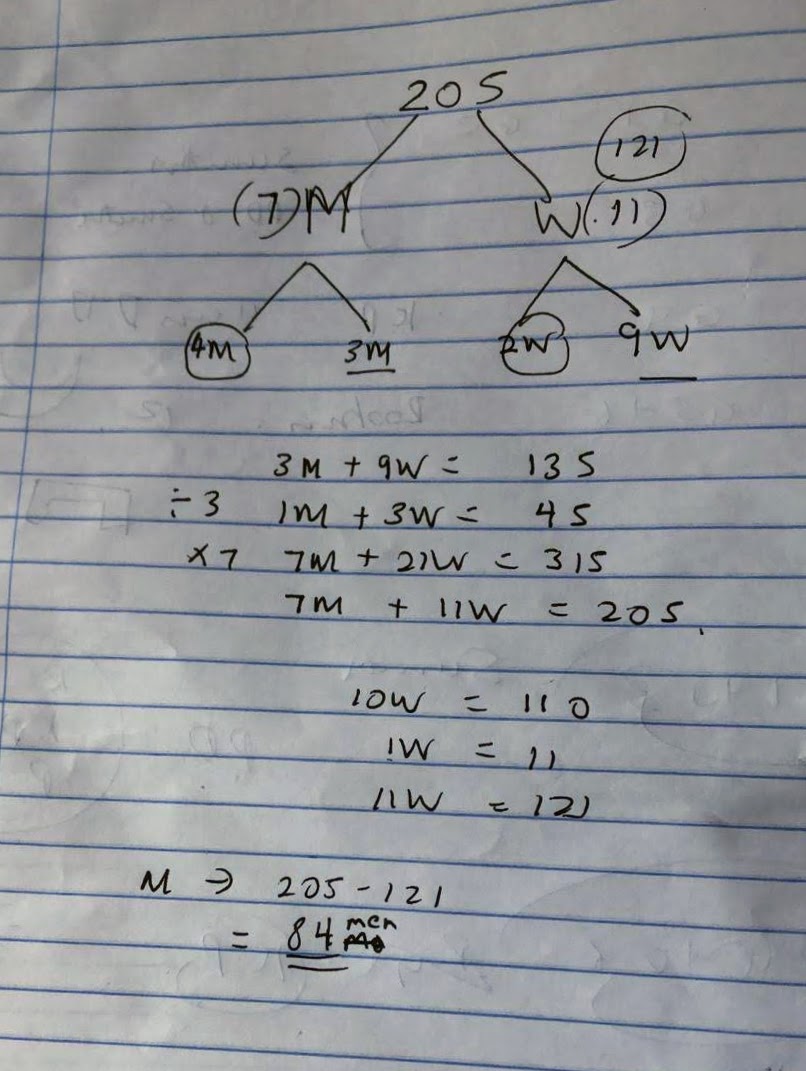 205
121
(7)M W(.11)
4M 3M 2W 9W
3M + 9W = 135
÷3 1M + 3W = 45
×7 7M + 21W = 315
7M + 11W = 205.
10W = 110
1W = 11
11W = 121
M → 205 - 121
men
= 84